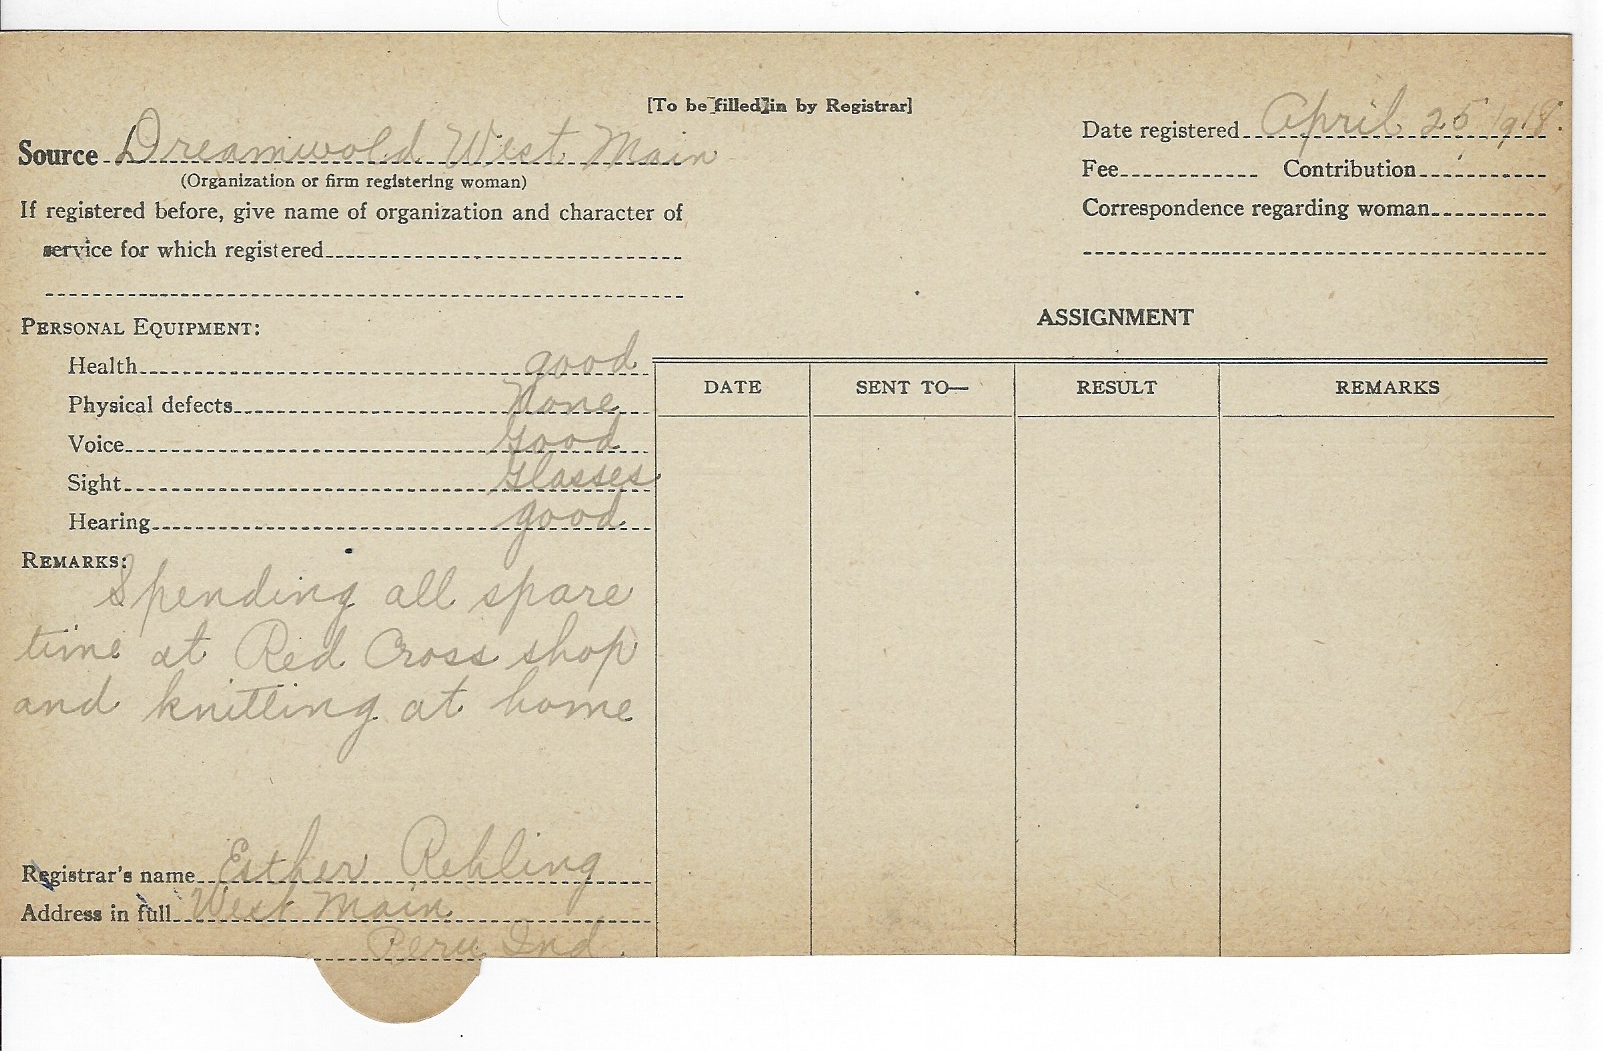 [To be filled in by Registrar]
Source Dreamwold West Main
(Organization or firm registering woman)
If registered before, give name of organization and character of
service for which registered
Date registered April 25, 1918.
Fee Contribution
Correspondence regarding woman
PERSONAL EQUIPMENT:
Health good
Physical defects None
Voice Good
Sight Glasses
Hearing good
REMARKS:
Spending all spare
time at Red Cross shop
and knitting at home
Registrar's name Esther Rehling
Address in full West Main
Peru Ind.
ASSIGNMENT
DATE SENT TO— RESULT REMARKS